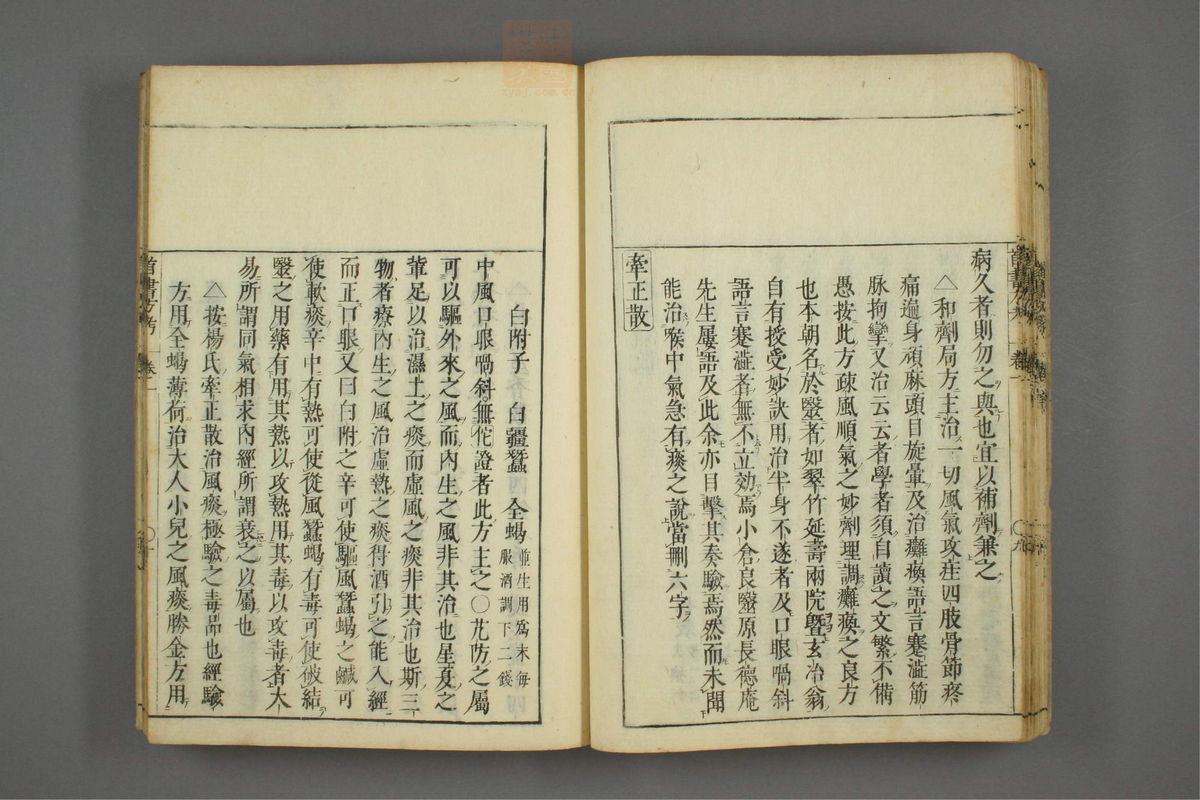 病久者則勿之與也宜以補劑兼之
△和劑局方主治一切風氣攻疰四肢骨節疼
痛遍身頑麻頭目旋暈及治癱瘓語言蹇澁筋
脉拘攣又治云云者學者須自讀之文繁不備
愚按此方疎風順氣之妙劑理調癱瘓之良方
也本朝名於毉者如翠竹延壽兩院曁玄冶翁
自有授受妙訣用治半身不遂者及口眼喎斜
語言蹇澁者無不立効焉小倉良毉原長德庵
先生屢語及此余亦目擊其奏驗焉然而未聞
能治喉中氣急有痰之說當刪六字
牽正散
白附子 白殭蠶 全蝎 並生用爲末每
服酒調下二錢
中風口眼喎斜無佗證者此方主之〇芤防之屬
可以驅外來之風而內生之風非其治也星夏之
輩足以治濕土之痰而虛風之痰非其治也斯三
物者療內生之風治虛熱之痰得酒引之能入經
而正口眼又曰白附之辛可使驅風蠶蝎之鹹可
使軟痰辛中有熱可使從風蠶蝎有毒可使破結
毉之用藥有用其熱以攻熱用其毒以攻毒者大
易所謂同氣相求內經所謂衰之以屬也
△按楊氏牽正散治風痰極驗之毒品也經驗
方用全蝎薄荷治大人小兒之風痰勝金方用